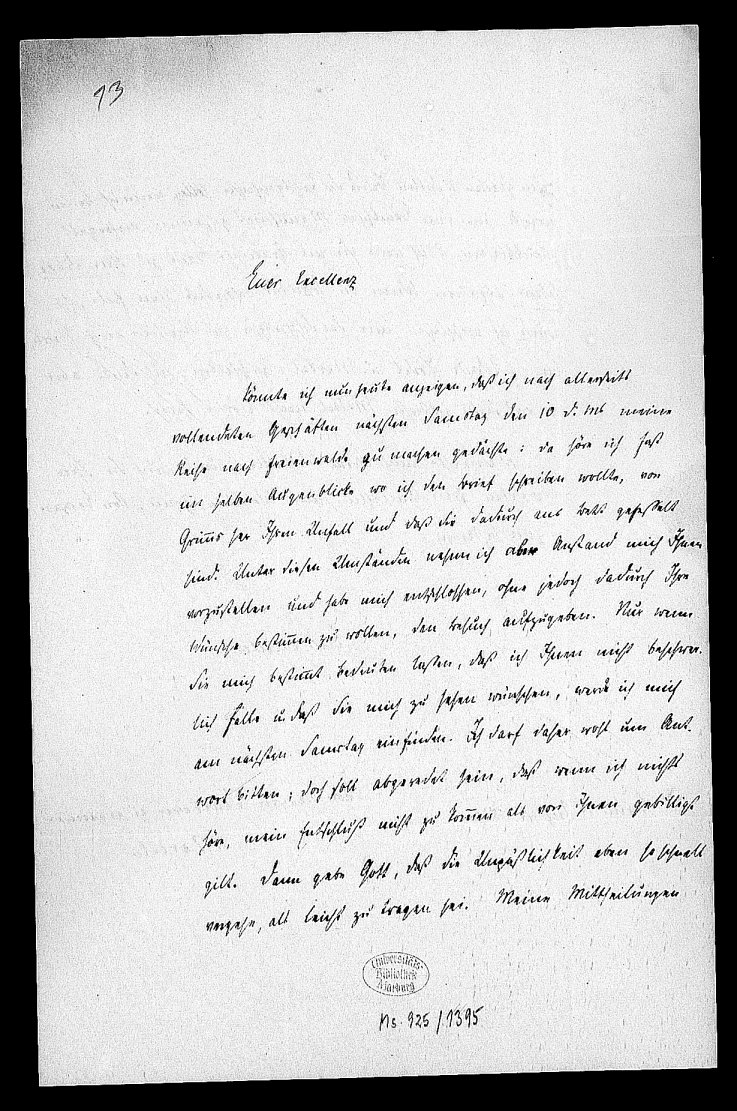 93
Euer Excellenz
könnte ich nun heute anzeigen, daß ich nach allerseits
vollendeten Geschäften nächsten Samstag den 10 d. Mts meine
Reise nach Freienwalde zu machen gedächte: da höre ich fast
im selben Augenblicke wo ich den Brief schreiben wollte, von
Grimms her Ihren Unfall und daß Sie dadurch ans Bett gefesselt
sind. Unter diesen Umständen nehme ich aber Anstand mich Ihnen
vorzustellen und habe mich entschlossen, ohne jedoch dadurch Ihre
Wünsche bestimmen zu wollen, den Besuch aufzugeben. Nur wenn
Sie mich bestimmt bedeuten lassen, daß ich Ihnen nicht beschwer-
lich falle u. daß Sie mich zu sehen wünschen, werde ich mich
am nächsten Samstag einfinden. Ich darf daher wohl um Ant-
wort bitten; doch soll abgeredet sein, daß wenn ich nichts
höre, mein Entschluß nicht zu kommen als von Ihnen gebilligt
gilt. Dann gebe Gott, daß die Unpäßlichkeit eben so schnell
vergehe, als leicht zu tragen sei. Meine Mittheilungen
Universitäts-
Bibliothek
Marburg
Ms. 925/1395